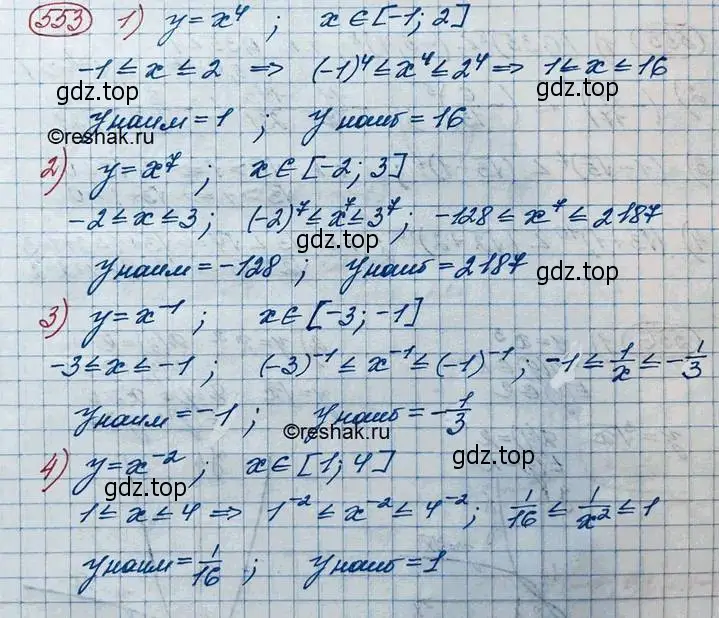 553 1) y = x⁴ ; x ∈ [-1; 2]
-1 ≤ x ≤ 2 ⇒ (-1)⁴ ≤ x⁴ ≤ 2⁴ ⇒ 1 ≤ x ≤ 16
gdz.top gdz.top
yнаим = 1 ; yнаиб = 16
©reshak.ru
2) y = x⁷ ; x ∈ [-2; 3]
-2 ≤ x ≤ 3; (-2)⁷ ≤ x⁷ ≤ 3⁷; -128 ≤ x⁷ ≤ 2187
gdz.top
yнаим = -128 ; yнаиб = 2187
gdz.top gdz.top
3) y = x⁻¹ ; x ∈ [-3; -1]
-3 ≤ x ≤ -1 ; (-3)⁻¹ ≤ x⁻¹ ≤ (-1)⁻¹ ; -1 ≤ 1/x ≤ -1/3
yнаим = -1 ; yнаиб = -1/3
©reshak.ru
4) y = x⁻² ; x ∈ [1; 4]
gdz.top gdz.top
1 ≤ x ≤ 4 ⇒ 1⁻² ≤ x⁻² ≤ 4⁻² ; 1/16 ≤ 1/x² ≤ 1
yнаим = 1/16 ; yнаиб = 1